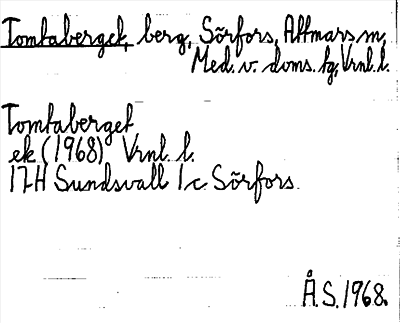 Tomtaberget, berg, Sörfors, Attmars sn,
Med. v. doms. tg, Vrnl. l.
Tomtaberget
ek (1968) Vrnl. l.
17H Sundsvall 1c Sörfors
Å.S. 1968.